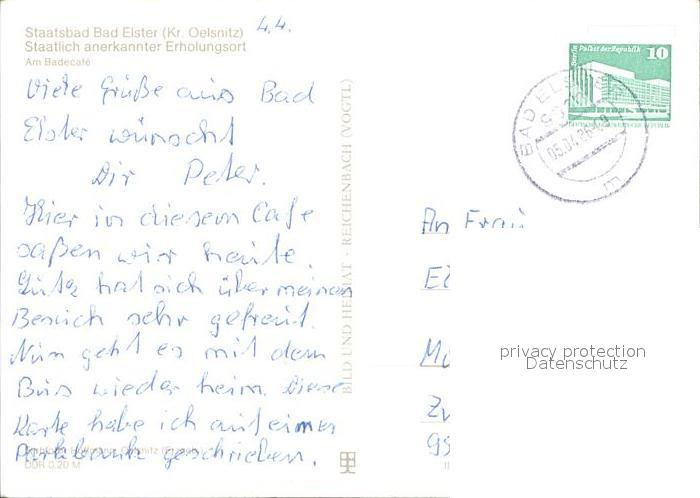 Staatsbad Bad Elster (Kr. Oelsnitz)
Staatlich anerkannter Erholungsort
Am Badecafé
4.4.
Viele Grüße aus Bad
Elster wünscht
Dir Peter.
Hier in diesem Cafe
saßen wir heute.
hat sich über meinen
Besuch sehr gefreut.
Nun geht es mit dem
Bus wieder heim. Diese
Karte habe ich auf einer
Parkbank geschrieben.
DDR 0,20 M
BILD UND HEIMAT · REICHENBACH (VOGTL)
Berlin Palast der Republik 10
BAD ELSTER
05.04.86
m
An Frau
privacy protection
Datenschutz